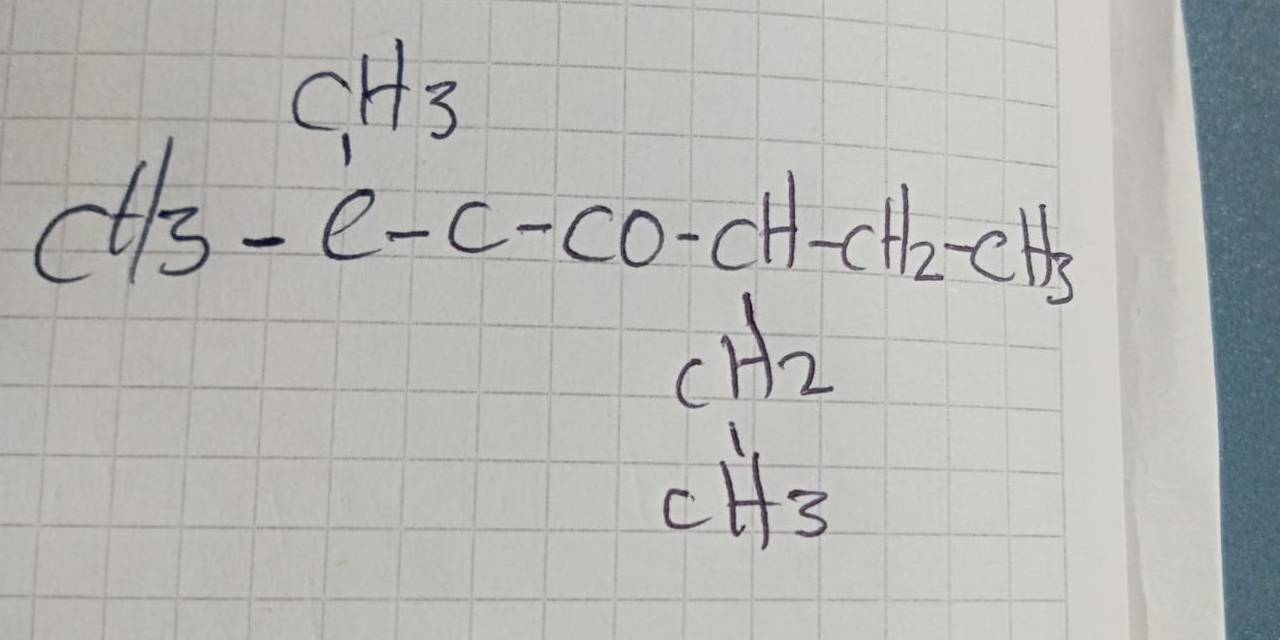 CH3
CH3-C-C-CO-CH-CH2-CH3
CH2
CH3